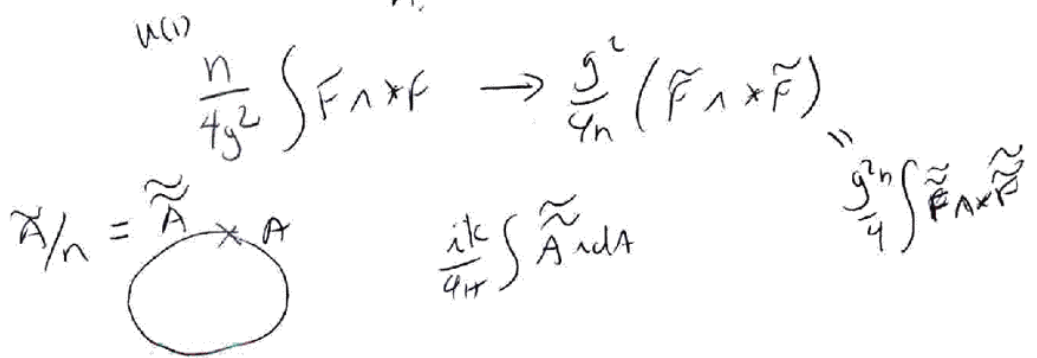 U(1)
n/4g² ∫ F ∧ *F → g²/4n ( F̃ ∧ *F̃ )
= g²n/4 ∫ F̃̃ ∧ * F̃̃
Ã/n = Ã̃ × A
ik/4π ∫ Ã̃ ∧ dA